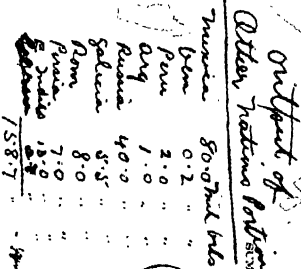 Output of
Other Nations Portion
SUM
Mexico 80.0 Mil bbls
Ven 0.2 "
Peru 2.0 "
Arg 1.0 " "
Russia 40.0 " "
Galicia 5.5 " "
Rom 8.0 " "
Persia 7.0 " "
E Indies 13.0 " "
1587